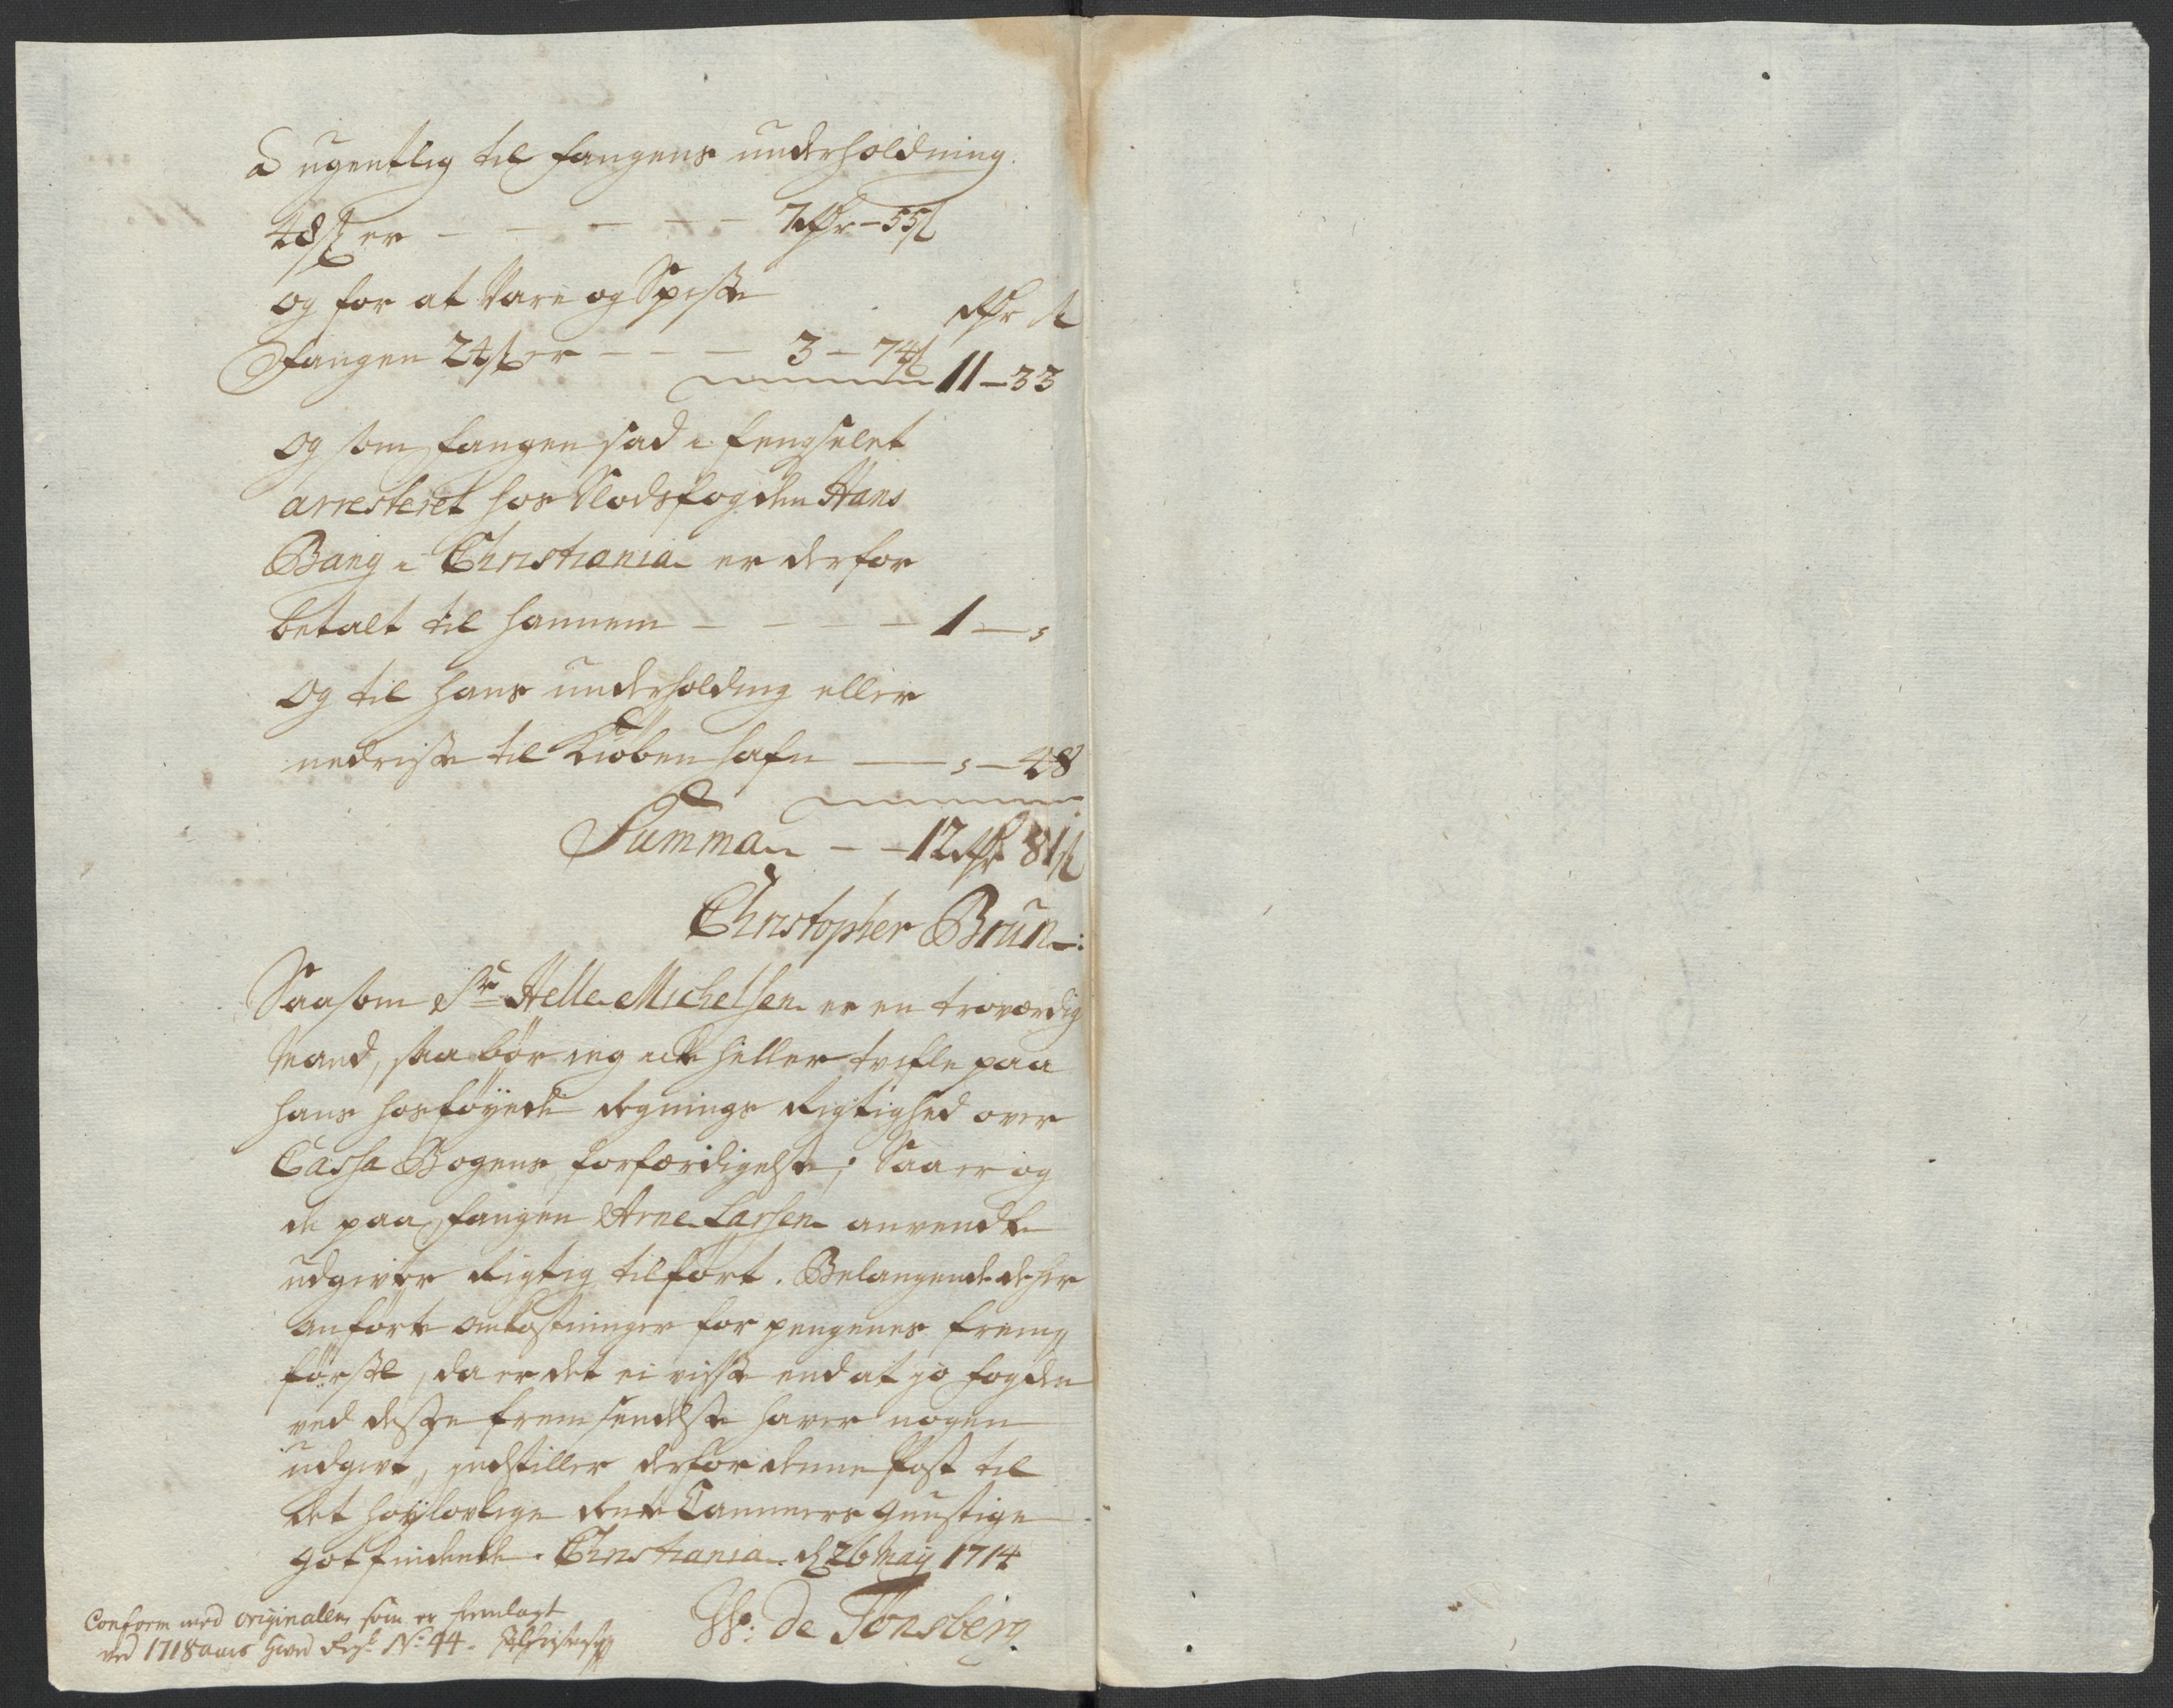 a ugentlig til fangens underholdning.
48 s er - - - - - 7 Rdr - 55 s
og for at vare og Spisse
Rdr s
fangen 24 s er - - - 3 - 74 s
11 - 33
og som fangen sad i fengselet
arresteret hos Slodsfogden Hans
Bang i Christiania er derfor
betalt til hannem - - - - 1 - ,
og til hans underholding eller
nedreise til Kiøbenhafn - , - 48
Summa - - 12 Rdr 81 s
Christopher Brun:
Saasom Sr Helle Michelsen er en troværdig
Mand, saa bør ieg icke heller tvifle paa
hans hosføyede Regnings Rigtighed over
Cassa Bogens forfærdigelse; Saa er og
de paa fangen Arne Larsen anvendte
udgivter Rigtig tilført. Belangende de her
anførte omkostninger for pengenes frem
førsel, da er det ei visse end at jo fogden
ved desse fremsendelse haver nogen
udgivt, indstiller derfor denne Post til
Det høylovlige Rente Cammers gunstige
gotfindende. Christiania d 26 Maij 1714
W: de Tonsberg
Conform med originalen som er fremlagt
ved 1718 aars Regsk No 44.